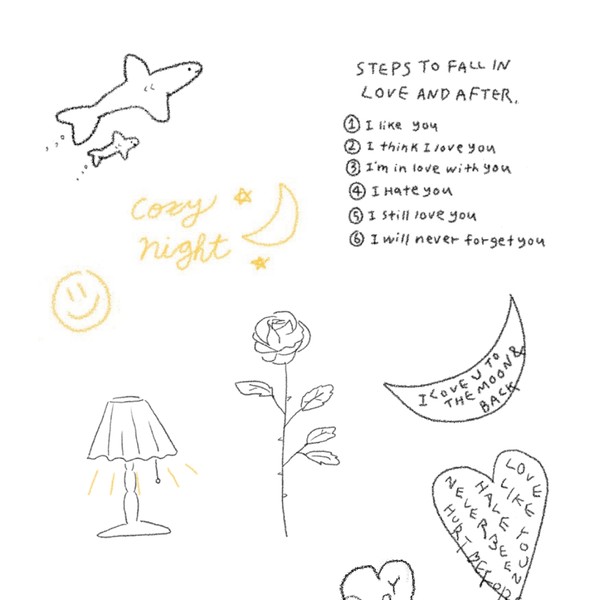 STEPS TO FALL IN
LOVE AND AFTER.
① I like you
② I think I love you
③ I'm in love with you
④ I Hate you
⑤ I still love you
⑥ I will never forget you
cozy
night
I LOVE U TO
THE MOON &
BACK
LOVE
LIKE YOU
HAVE
NEVER BEEN
HURT